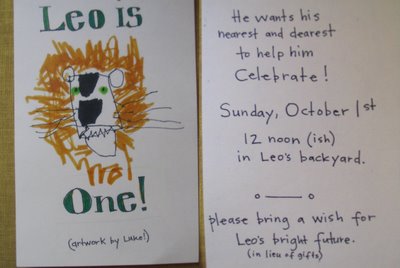 Leo is
One!
(artwork by Luke!)
He wants his
nearest and dearest
to help him
Celebrate!
Sunday, October 1st
12 noon (ish)
in Leo's backyard.
please bring a wish for
Leo's bright future.
(in lieu of gifts)